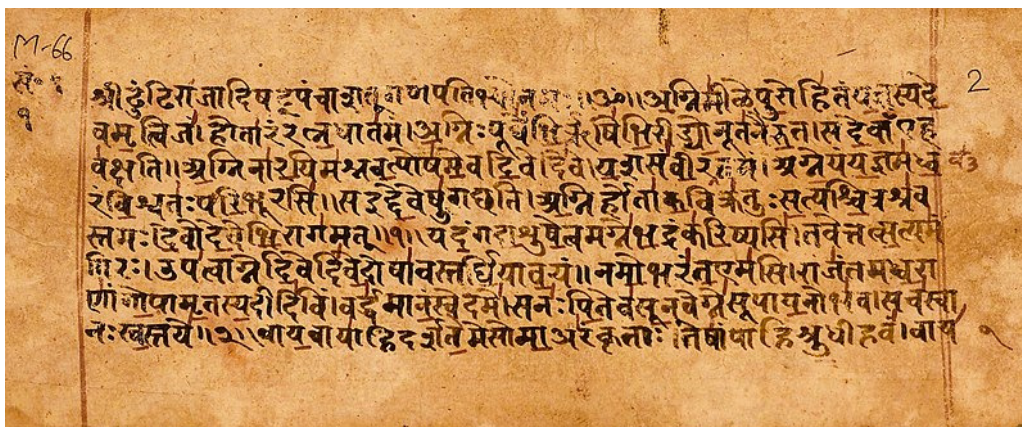 M-66
2
सं॰ १
१
श्रीढुंढिराजादिषट्पंचाशत् गणपतिभ्योनमः॥ॐ॥अग्निमीळेपुरोहितंयज्ञस्यदे
वमृत्विजं।होतारंरत्नधातमं।अग्निःपूर्वेभिर्ऋषिभिरीड्योनूतनैरुत।सदेवाँएह
वक्षति॥अग्निनारयिमश्नवत्पोषमेवदिवेदिवे।यशसंवीरवत्तमं।अग्नेयंयज्ञमध्व
रंविश्वतःपरिभूरसि॥सइद्देवेषुगच्छति।अग्निर्होताकविक्रतुःसत्यश्चित्रश्रव
स्तमः।देवोदेवेभिरागमत्॥१॥यदंगदाशुषेत्वमग्नेभद्रंकरिष्यसि।तवेत्तत्सत्यमं
गिरः।उपत्वाग्नेदिवेदिवेदोषावस्तर्धियावयं॥नमोभरंतएमसि।राजंतमध्वरा
णांगोपामृतस्यदीदिविं।वर्द्धमानंस्वेदमे।सनःपितेवसूनवेग्नेसूपायनोभव।सचस्वा
नःस्वस्तये॥२॥वायवायाहिदर्शतेमेसोमाअरंकृताः।तेषांपाहिश्रुधीहवं।वाय
१